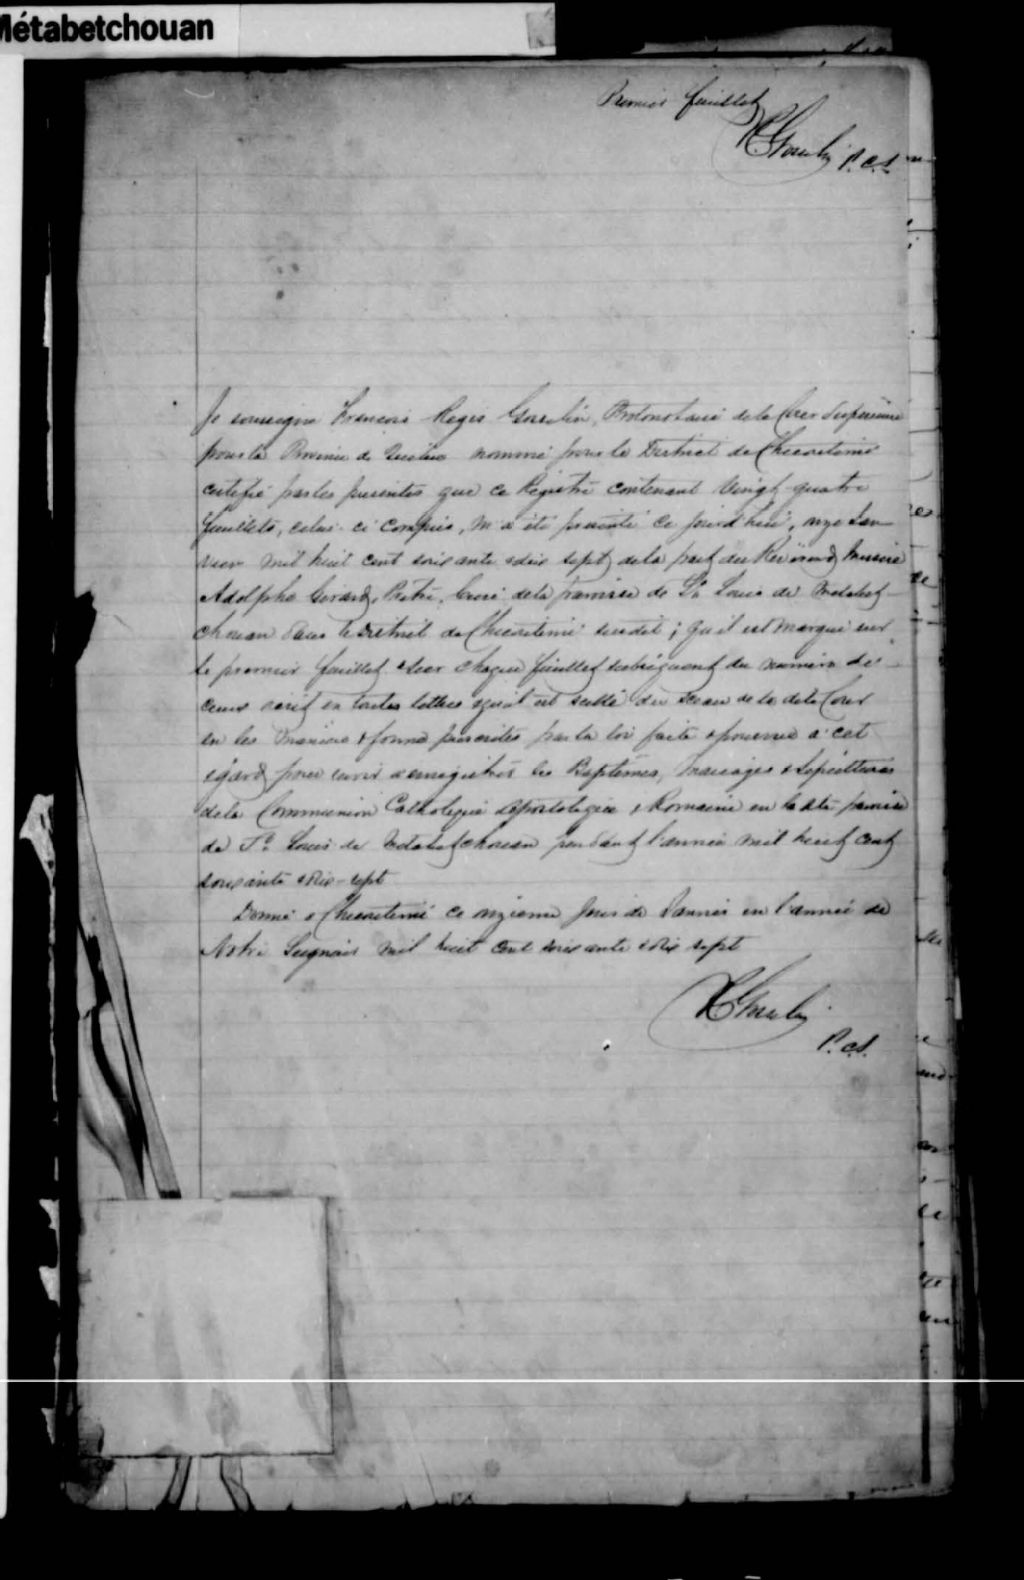 Métabetchouan
Premier feuillet
P.C.S.
Je soussigné Francois Regis Gosselin, Protonotaire de la Cour Supérieure
pour la Province de Québec nommé pour le District de Chicoutimi
certifie par les présentes que ce Régistre contenant Vingt quatre
feuillets, celui-ci compris, m'a été présenté ce jourd'hui, onze Jan-
vier mil huit cent soixante & dix sept de la part du Révérend Messire
Adolphe Girard, Prêtre, Curé de la paroisse de St Louis de Metabet-
chouan dans le District de Chicoutimi susdit ; qu'il est marqué sur
le premier feuillet & sur chaque feuillet subséquent du numéro de
ceux écrit en toutes lettres & qu'il est scellé du sceau de la dite Cour
en les manière & forme prescrites par la loi faite & pourvue à cet
égard, pour servir à enregistrer les Baptêmes, Mariages & Sépultures
de la Communion Catholique Apostolique & Romaine en la dite paroisse
de St Louis de Metabetchouan pendant l'année mil huit cent
soixante & dix-sept
Donné à Chicoutimi ce onzième jour de Janvier en l'année de
Notre Seigneur mil huit cent soixante & dix sept
P.C.S.